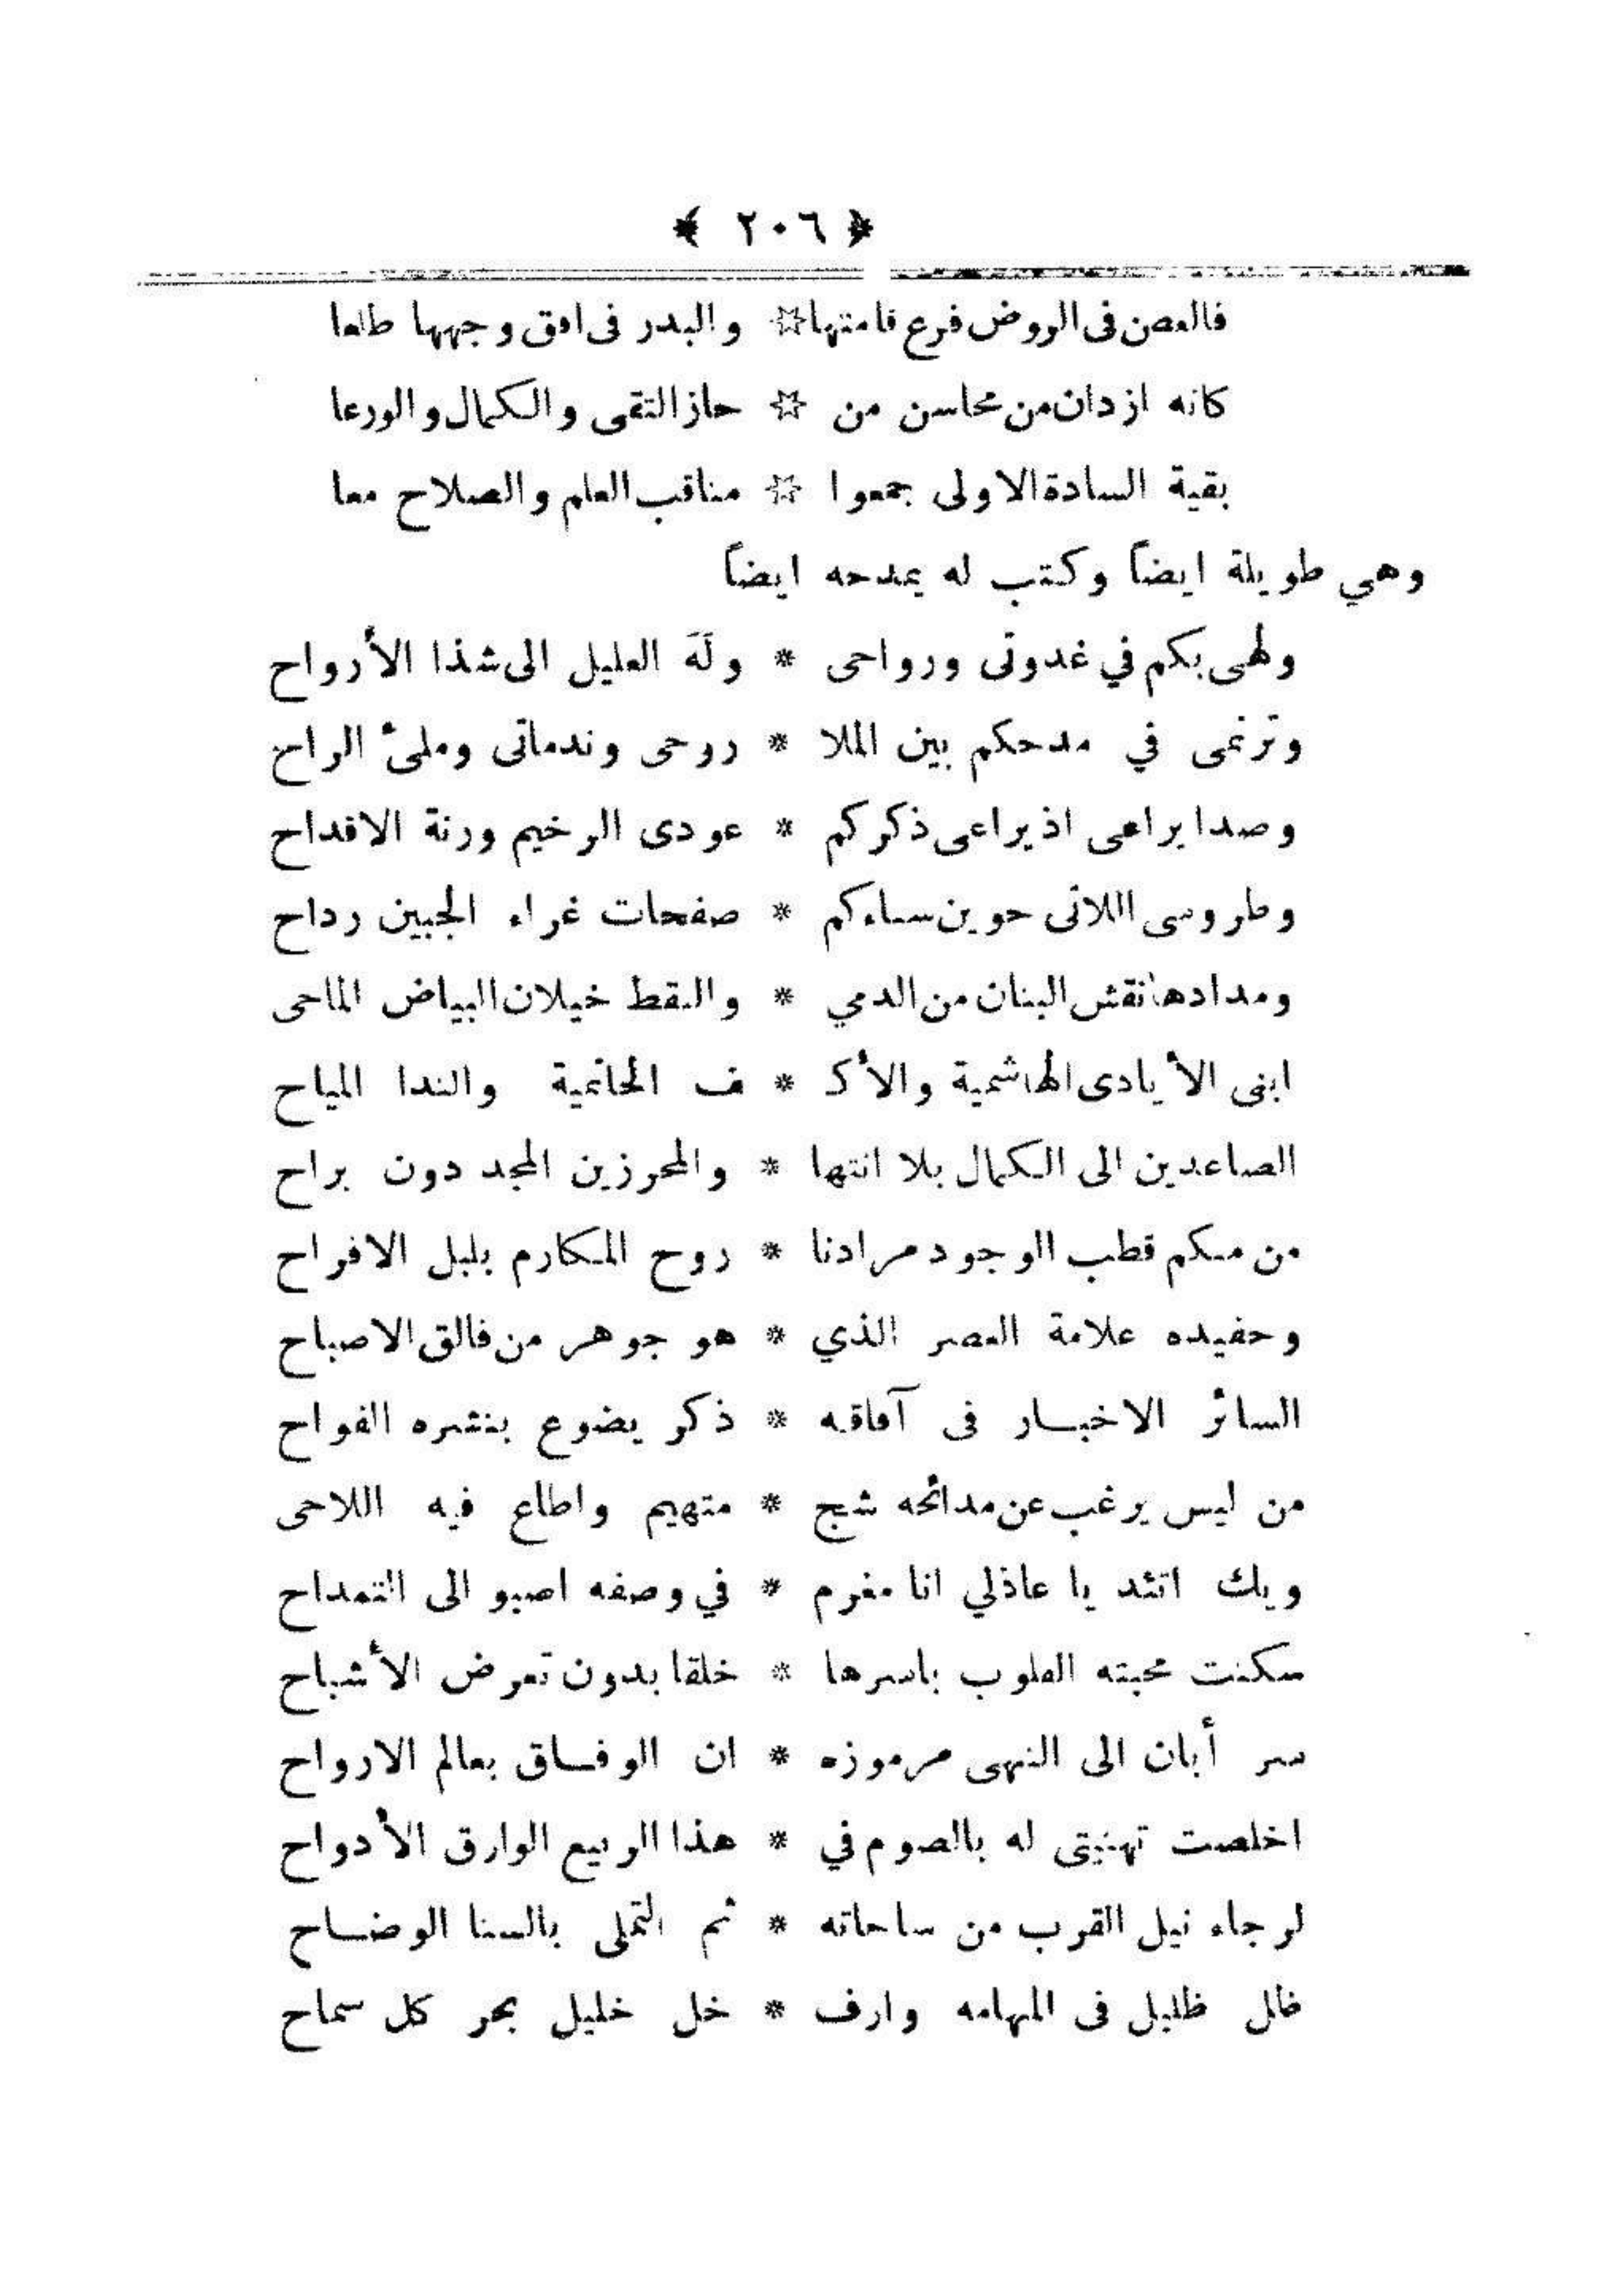 ﴿ ٢٠٦ ﴾
فالغصن فى الروض فرع قامتها ☆ والبدر فى افق وجهها طلعا
كانه ازدان من محاسن من ☆ حاز التقى والكمال والورعا
بقية السادة الاولى جمعوا ☆ مناقب العلم والصلاح معا
وهي طويلة ايضاً وكتب له يمدحه ايضاً
ولهى بكم في غدوتى ورواحى * ولَهَ العليل الى شذا الأرواح
وترنمى في مدحكم بين الملا * روحى وندمانى وملئ الراح
وصدا يراعى اذ يراعى ذكركم * عودى الرخيم ورنة الاقداح
وطروسى اللاتى حوين سماءكم * صفحات غراء الجبين رداح
ومدادها نقش البنان من الدمي * والنقط خيلان البياض الماحى
ابنى الأيادى الهاشمية والأكـ * ف الحاتمية والندا المياح
الصاعدين الى الكمال بلا انتها * والمحرزين المجد دون براح
من منكم قطب الوجود مرادنا * روح المكارم بلبل الافراح
وحفيده علامة العصر الذي * هو جوهر من فالق الاصباح
السائر الاخبـار فى آفاقه * ذكر يضوع بنشره الفواح
من ليس يرغب عن مدائحه شج * متهيم واطاع فيه اللاحى
ويك اتئد يا عاذلي انا مغرم * في وصفه اصبو الى التمداح
سكنت محبته القلوب باسرها * خلقا بدون تعرض الأشباح
سر أبان الى النهى مرموزه * ان الوفـاق بعالم الارواح
اخلصت تهنيتى له بالصوم في * هذا الربيع الوارق الأدواح
لرجاء نيل القرب من ساحاته * ثم التملى بالسنا الوضـاح
ظل ظليل فى المهامه وارف * خل خليل بحر كل سماح